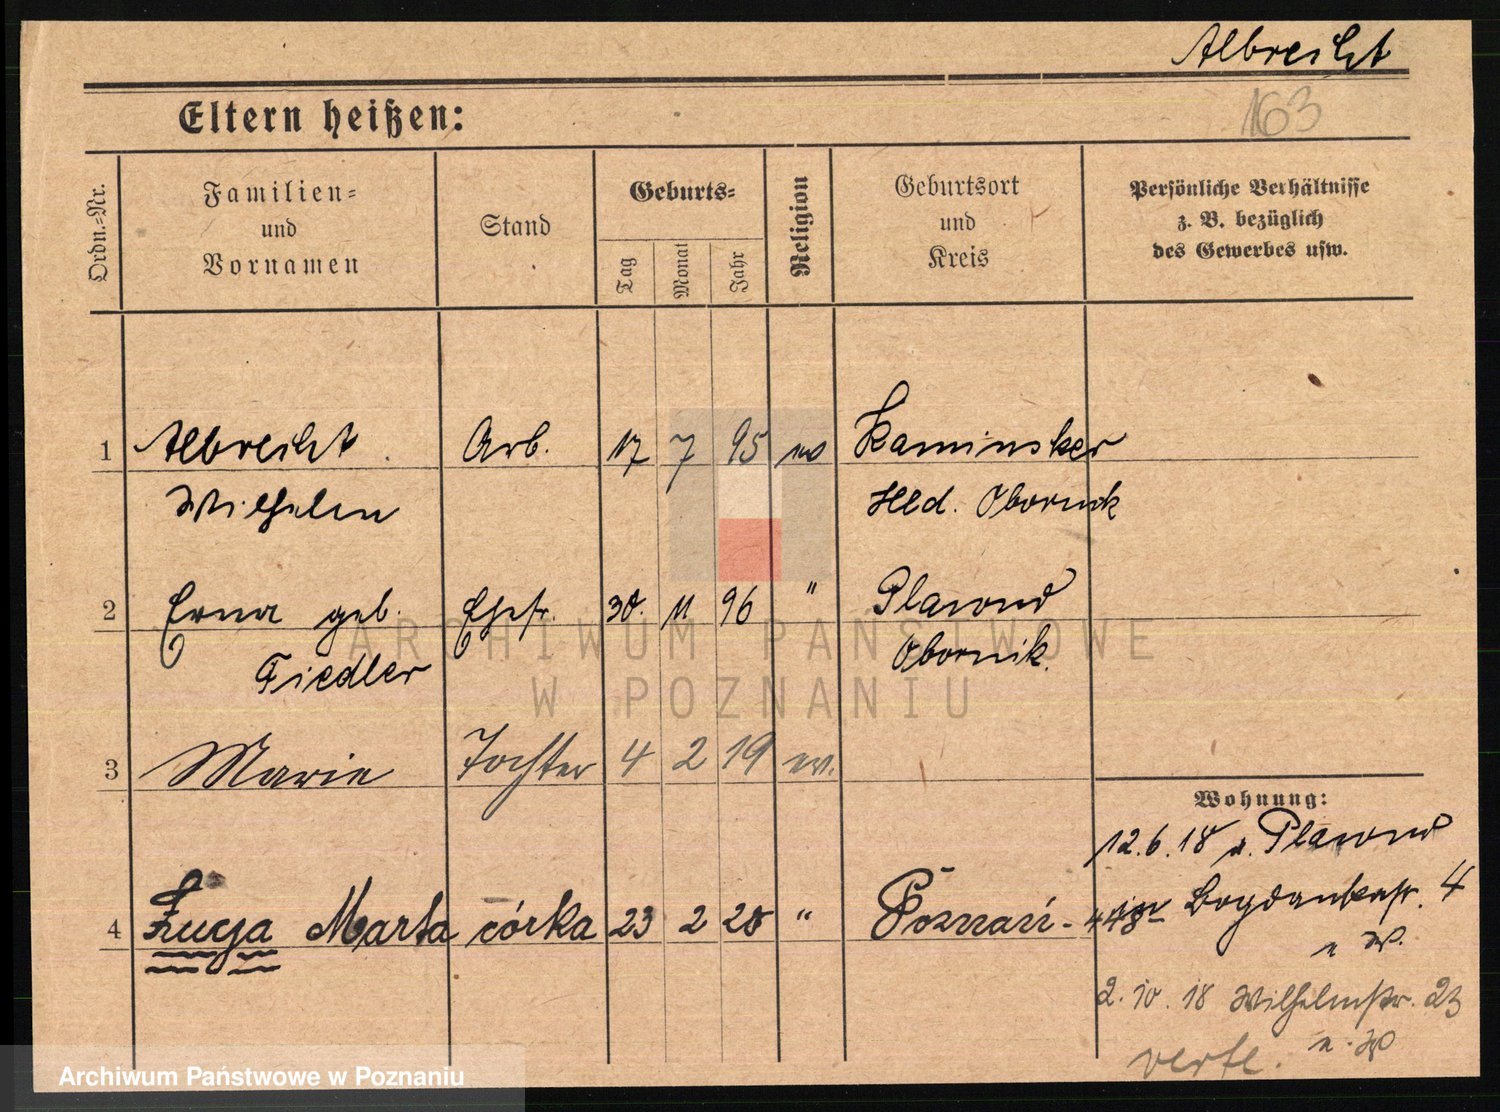 Albrecht
163
Eltern heißen:
Ordn.-Nr.
Familien-
und
Vornamen
Stand
Geburts-
Tag
Monat
Jahr
Religion
Geburtsort
und
Kreis
Persönliche Verhältnisse
z. B. bezüglich
des Gewerbes usw.
1 Albrecht Arb. 17 7 95 ev Kaminsker
Wilhelm Hld. Obornik
2 Erna geb. Ehefr. 30. 11 96 " Plawno
Fiedler Obornik.
3 Marie Tochter 4 2 19 ev.
Wohnung:
12.6.18 v. Plawno
4 Łucja Marta córka 23 2 28 " Poznań -
Bogdankastr. 4
2. 10. 18 Wilhelmstr. 23
verte.
ARCHIWUM PAŃSTWOWE
W POZNANIU
Archiwum Państwowe w Poznaniu